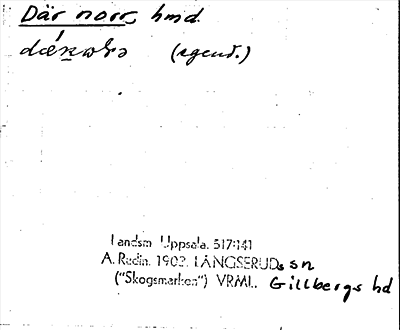 Där norr, hmd.
(egend.)
Landsm Uppsala. 517:141
A. Redin. 1902. LÅNGSERUDs sn
("Skogsmarken") VRML. Gillbergs hd